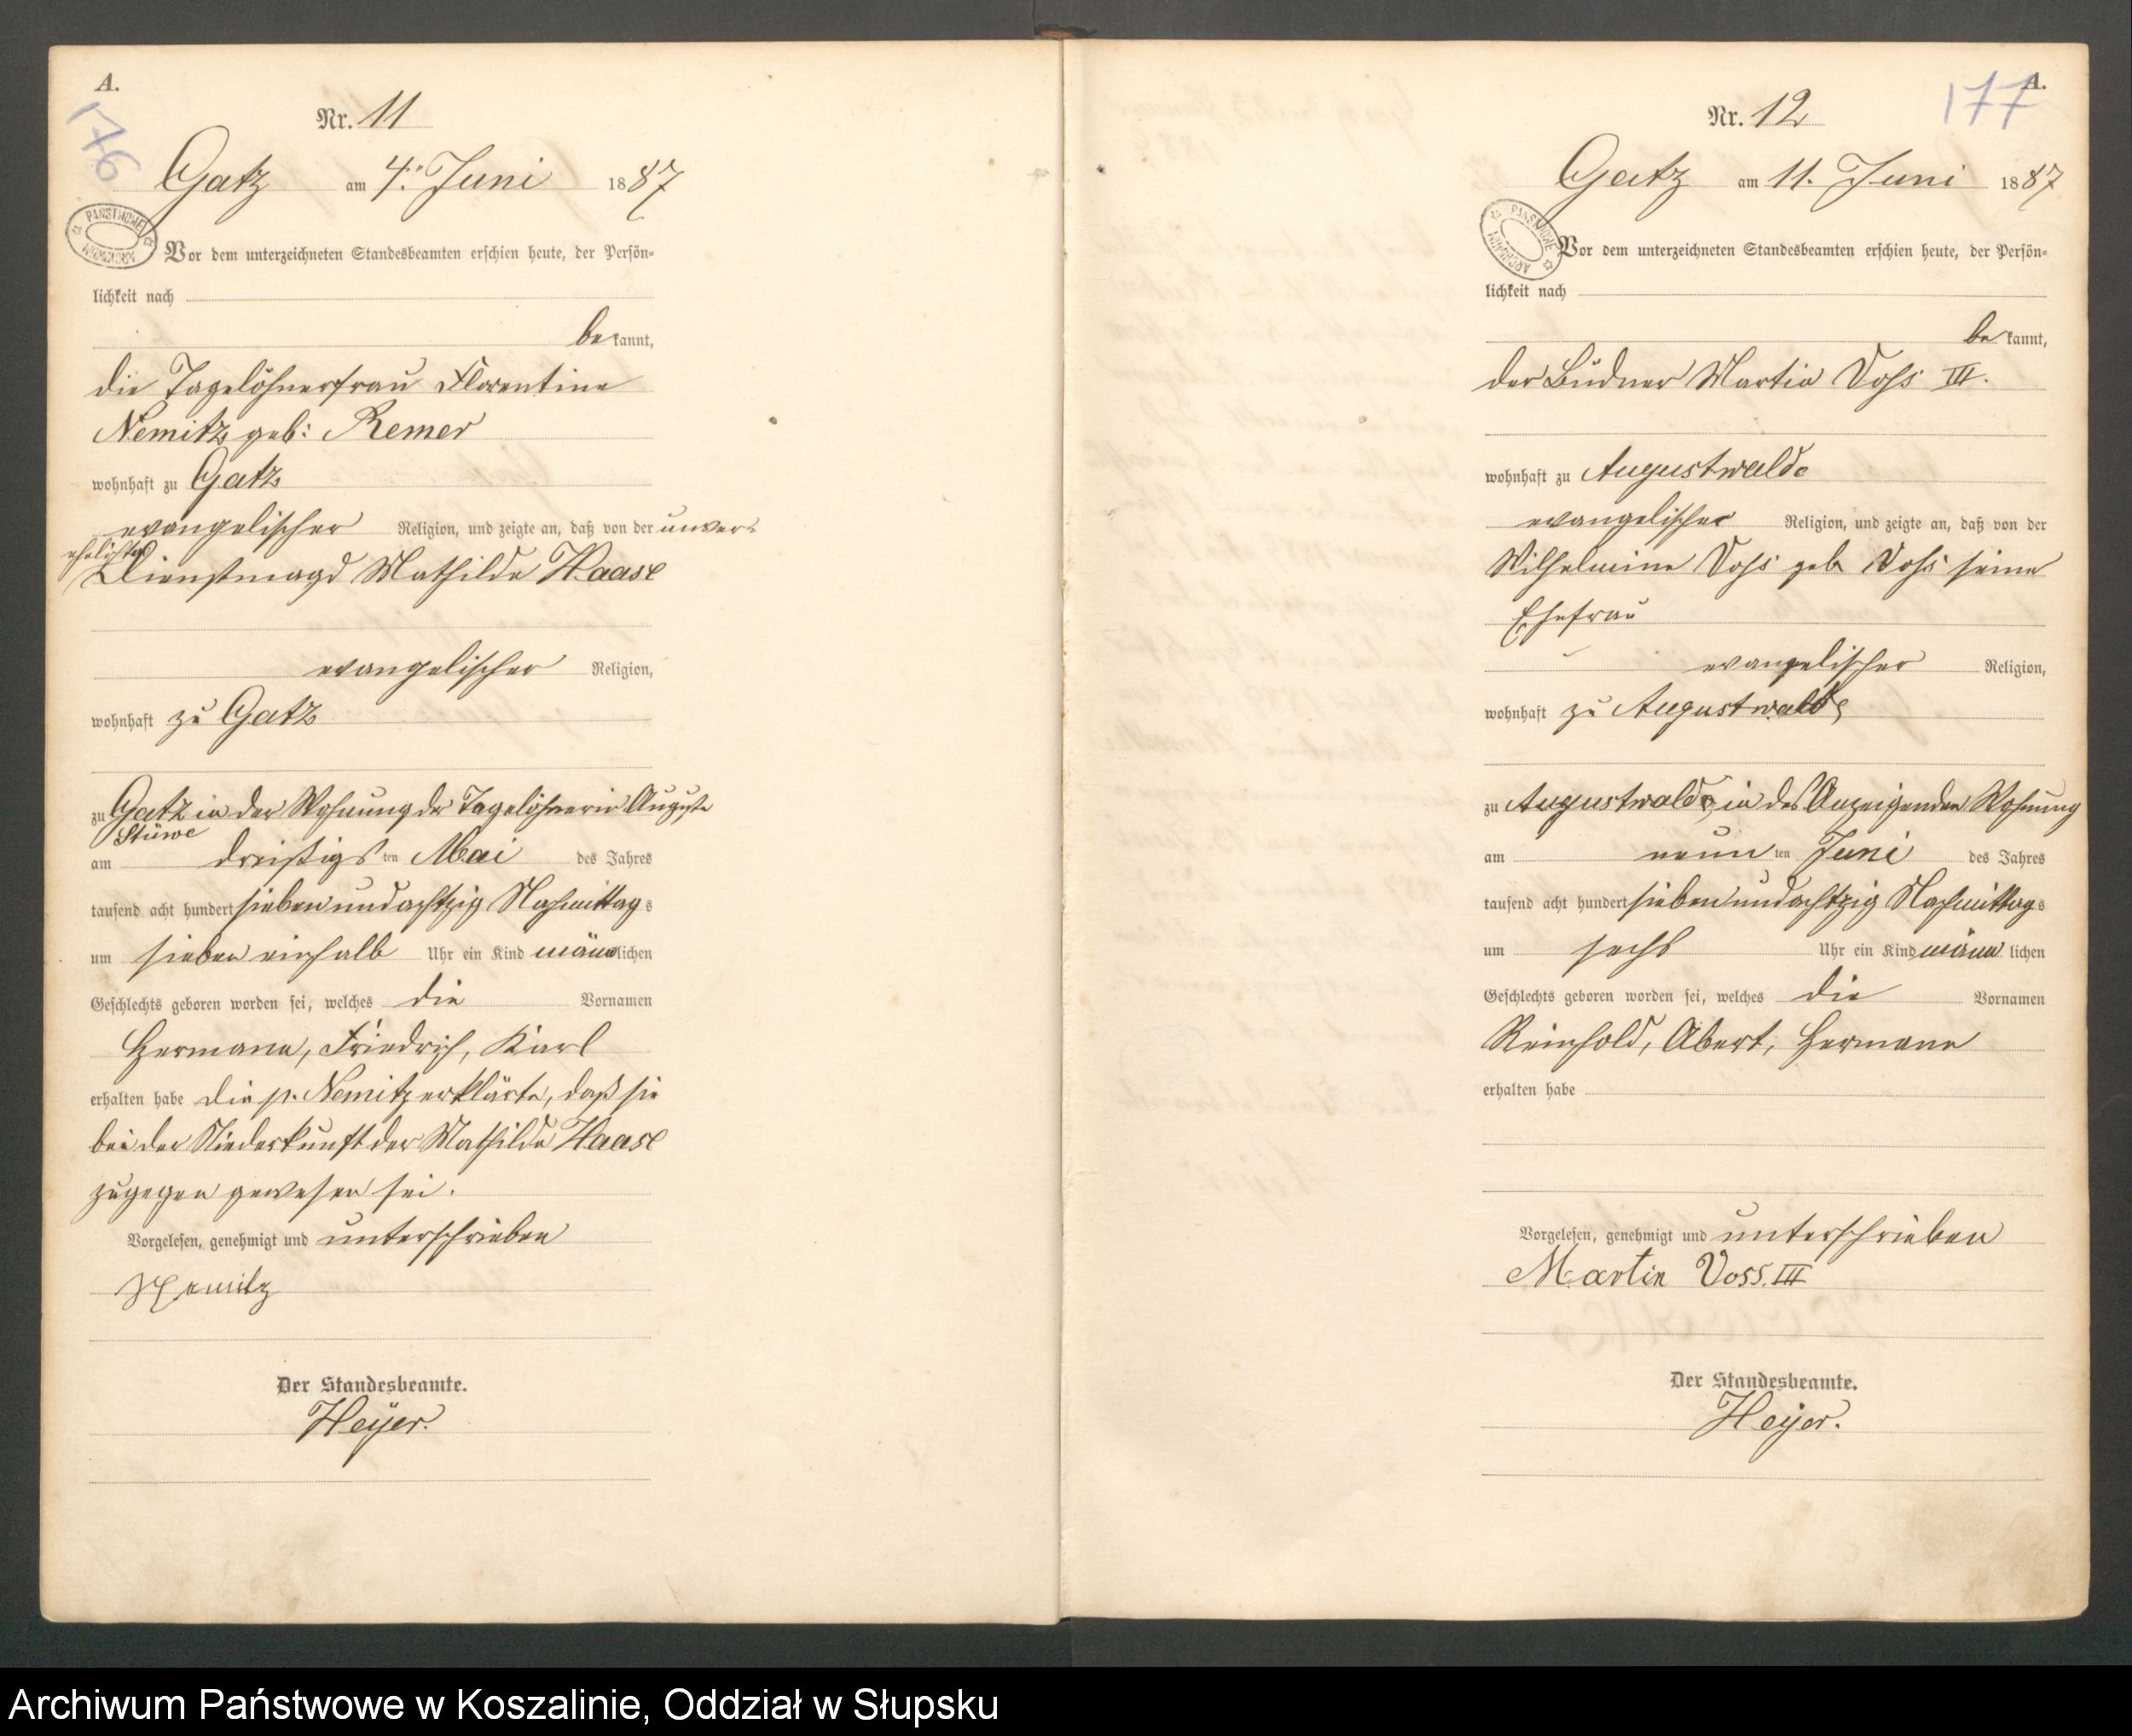 A.
176
Nr. 11
Gatz am 4. Juni 1887
PAŃSTWOWE ARCHIWUM
Vor dem unterzeichneten Standesbeamten erschien heute, der Persön=
lichkeit nach
bekannt,
die Tagelöhnerfrau Florentine
Nemitz geb: Remer
wohnhaft zu Gatz
evangelischer Religion, und zeigte an, daß von der unver=
ehelichten
Dienstmagd Mathilde Haase
evangelischer Religion,
wohnhaft zu Gatz
zu Gatz in der Wohnung der Tagelöhnerin Auguste
Stüwe
am dreißigsten Mai des Jahres
tausend acht hundert sieben und achtzig Nachmittags
um sieben einhalb Uhr ein Kind männlichen
Geschlechts geboren worden sei, welches die Vornamen
Hermann, Friedrich, Karl
erhalten habe die p. Nemitz erklärte, daß sie
bei der Niederkunft der Mathilde Haase
zugegen gewesen sei.
Vorgelesen, genehmigt und unterschrieben
Nemitz
Der Standesbeamte.
Heyer.
A.
177
Nr. 12
Gatz am 11. Juni 1887
PAŃSTWOWE ARCHIWUM
Vor dem unterzeichneten Standesbeamten erschien heute, der Persön=
lichkeit nach
bekannt,
der Büdner Martin Voß III.
wohnhaft zu Augustwalde
evangelischer Religion, und zeigte an, daß von der
Wilhelmine Voß geb Voß seine
Ehefrau
evangelischer Religion,
wohnhaft zu Augustwalde
zu Augustwalde, in des Anzeigenden Wohnung
am neunten Juni des Jahres
tausend acht hundert sieben und achtzig Nachmittags
um sechs Uhr ein Kind männlichen
Geschlechts geboren worden sei, welches die Vornamen
Reinhold, Abert, Hermann
erhalten habe
Vorgelesen, genehmigt und unterschrieben
Martin Voss. III
Der Standesbeamte.
Heyer.
Archiwum Państwowe w Koszalinie, Oddział w Słupsku